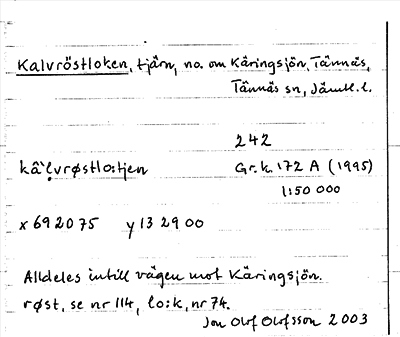 Kalvröstloken, tjärn, no. om Käringsjön, Tännäs,
Tännäs sn, Jämtl. l.
242
kâ`l̥vrøstlo:tjen Gr. k. 172 A (1995)
1:50 000
x 692075 y 132900
Alldeles intill vägen mot Käringsjön.
røst, se nr 114, lo:k, nr 74.
Jon Olof Olofsson 2003